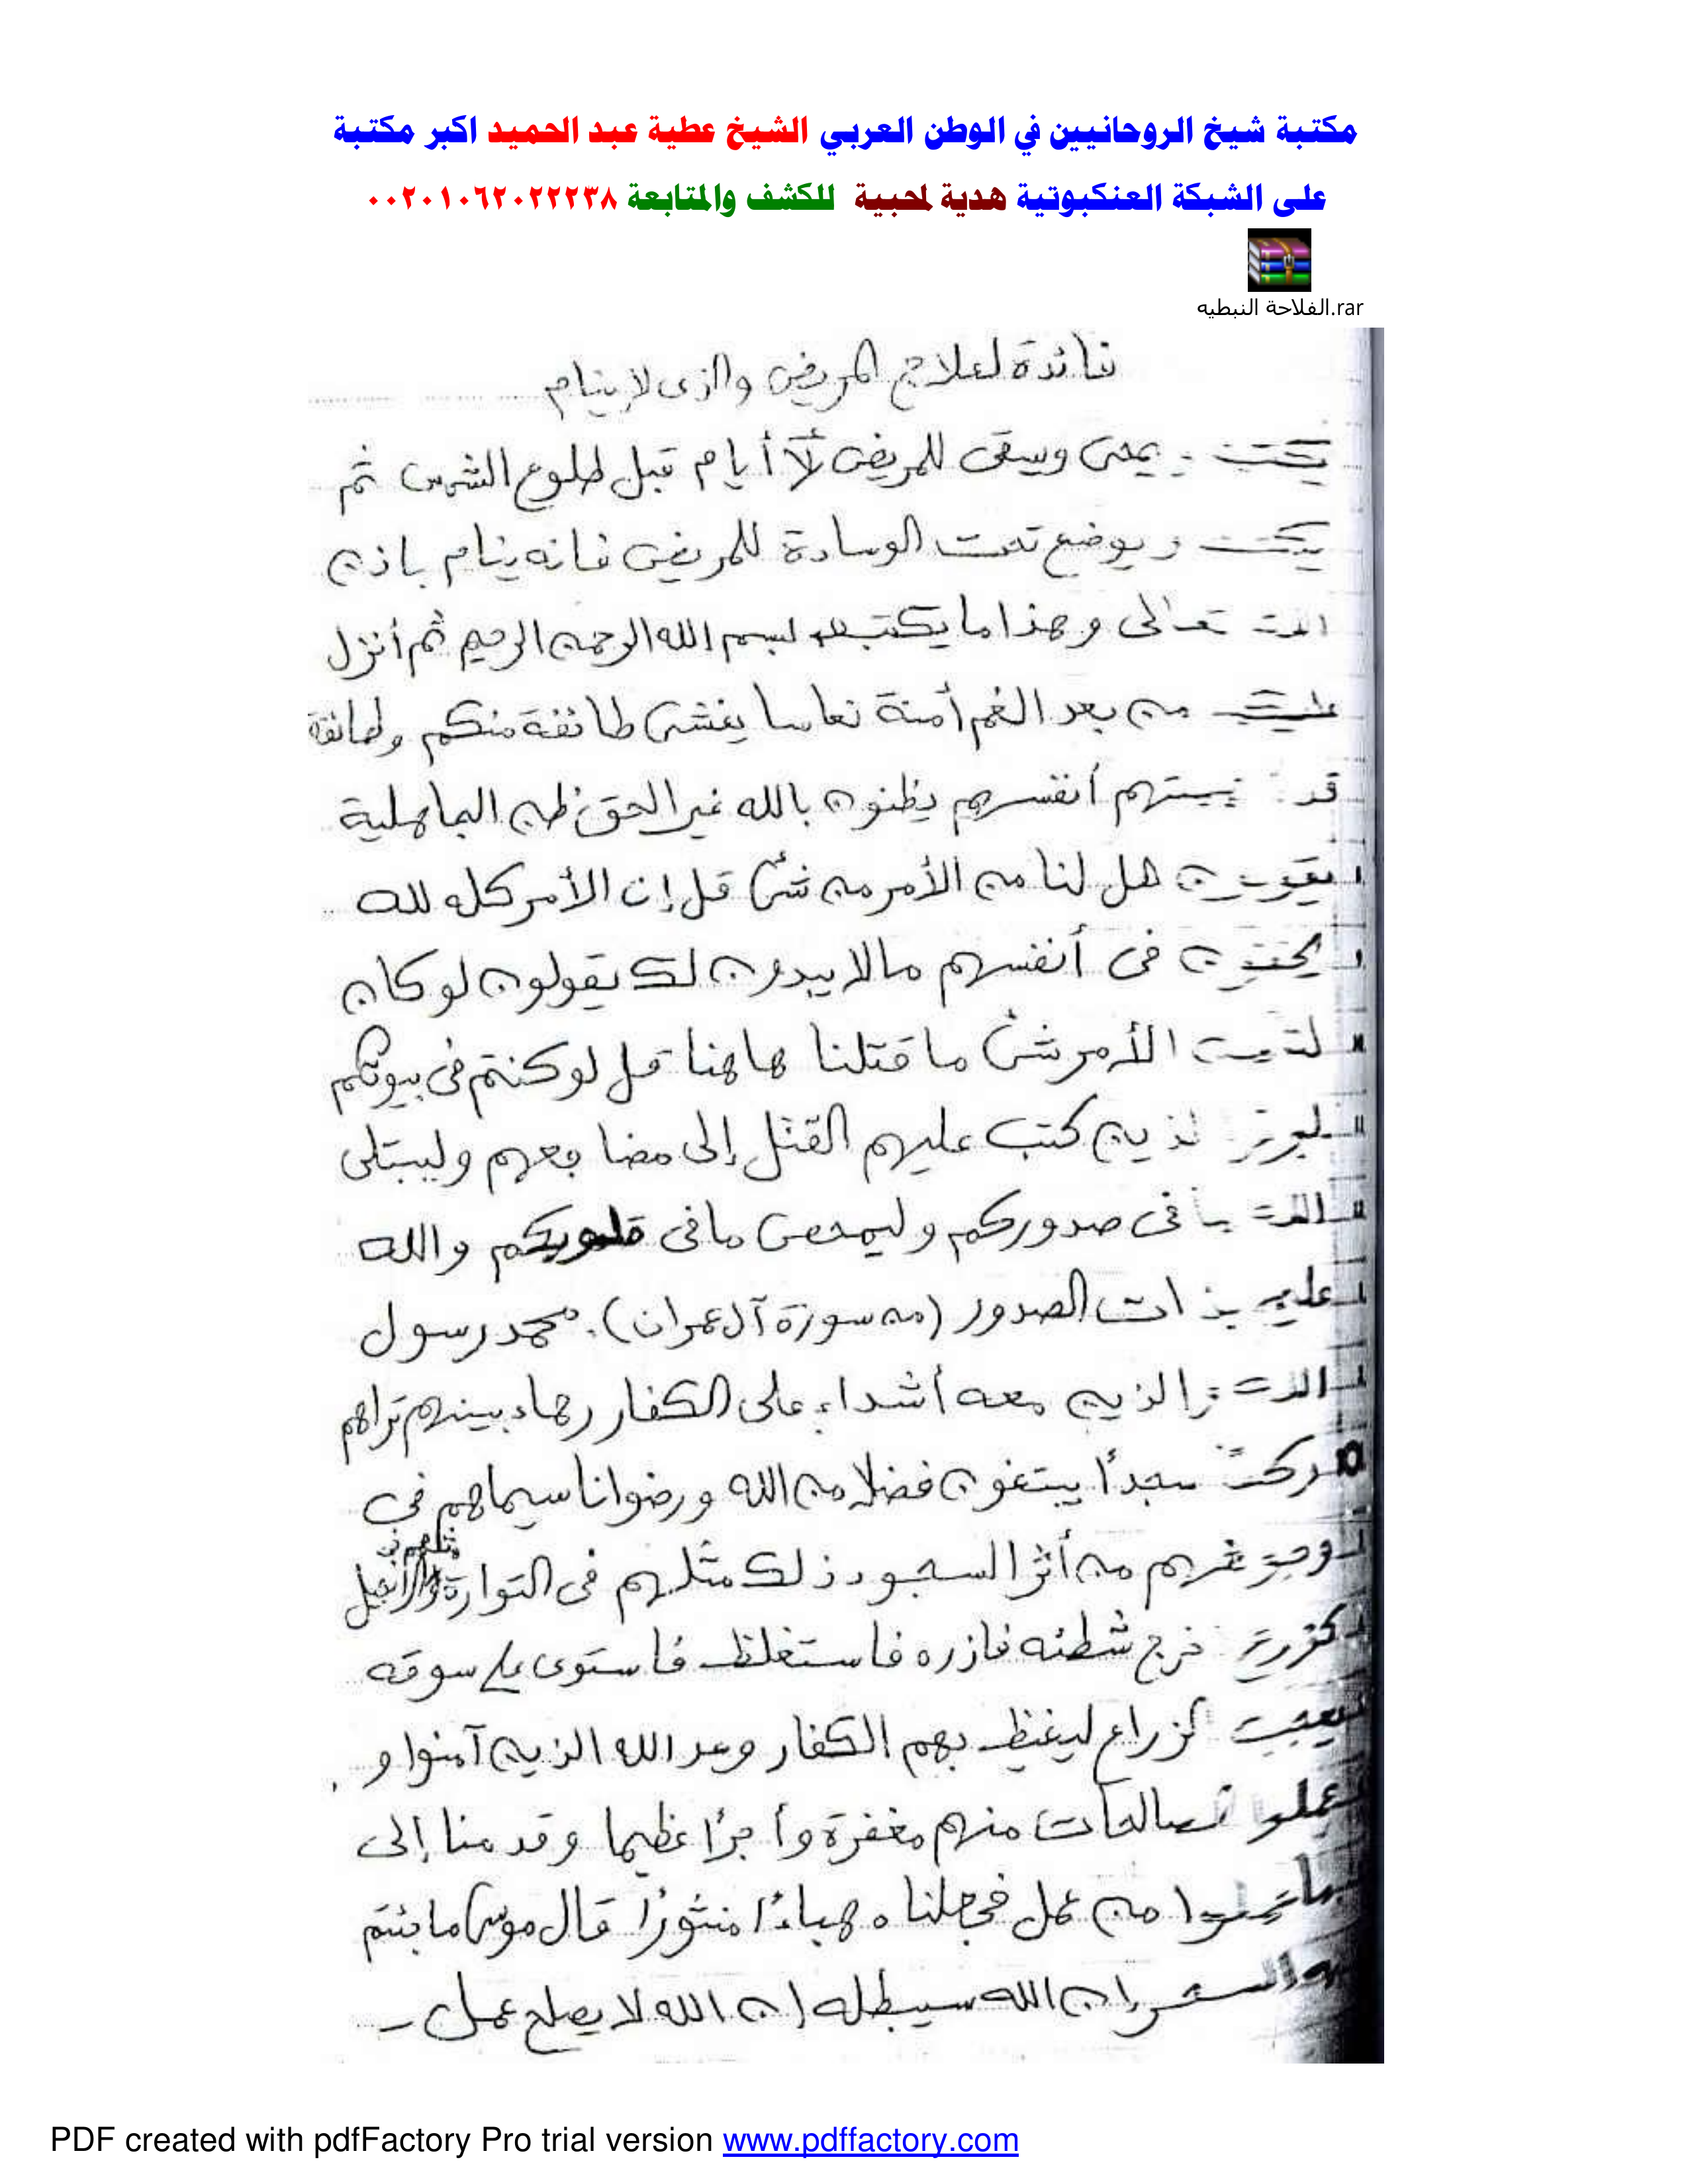 مكتبة شيخ الروحانيين في الوطن العربي الشيخ عطية عبد الحميد اكبر مكتبة
على الشبكة العنكبوتية هدية لمحبية للكشف والمتابعة ٠٠٢٠١٠٦٢٠٢٢٢٣٨
الفلاحة النبطيه.rar
فائدة لعلاج المريض والذى لا ينام
يكتب ويمحى ويسقى للمريض أيام قبل طلوع الشمس ثم
يكتب ويوضع تحت الوسادة للمريض فانه ينام باذن
الله تعالى وهذا ما يكتب بسم الله الرحمن الرحيم ثم أنزل
عليكم من بعد الغم أمنة نعاسا يغشى طائفة منكم وطائفة
قد أنفسهم يظنون بالله غير الحق ظن الجاهلية
يقولون هل لنا من الأمر من شئ قل إن الأمر كله لله
يخفون فى أنفسهم مالا يبدون لك يقولون لو كان
الأمر شئ ما قتلنا هاهنا قل لو كنتم فى بيوتكم
لبرز الذين كتب عليهم القتل إلى مضاجعهم وليبتلى
الله ما فى صدوركم وليمحص ما فى قلوبكم والله
عليم بذات الصدور (من سورة آل عمران). محمد رسول
الله والذين معه أشداء على الكفار رحماء بينهم تراهم
ركعا سجدأ يبتغون فضلا من الله ورضوانا سيماهم في
من أثر السجود ذلك مثلهم فى التوارة ومثلهم فى الانجيل
كزرع اخرج شطئه فازره فاستغلظ فاستوى على سوقه
يعجب الزراع ليغيظ بهم الكفار وعد الله الذين آمنوا و
عملوا الصالحات منهم مغفرة وأجرًا عظيما وقدمنا إلى
ما عملوا من عمل فجعلناه هباءًا منثورًا قال موسى ما جئتم
به السحر إن الله سيبطله إن الله لا يصلح عمل -
PDF created with pdfFactory Pro trial version www.pdffactory.com